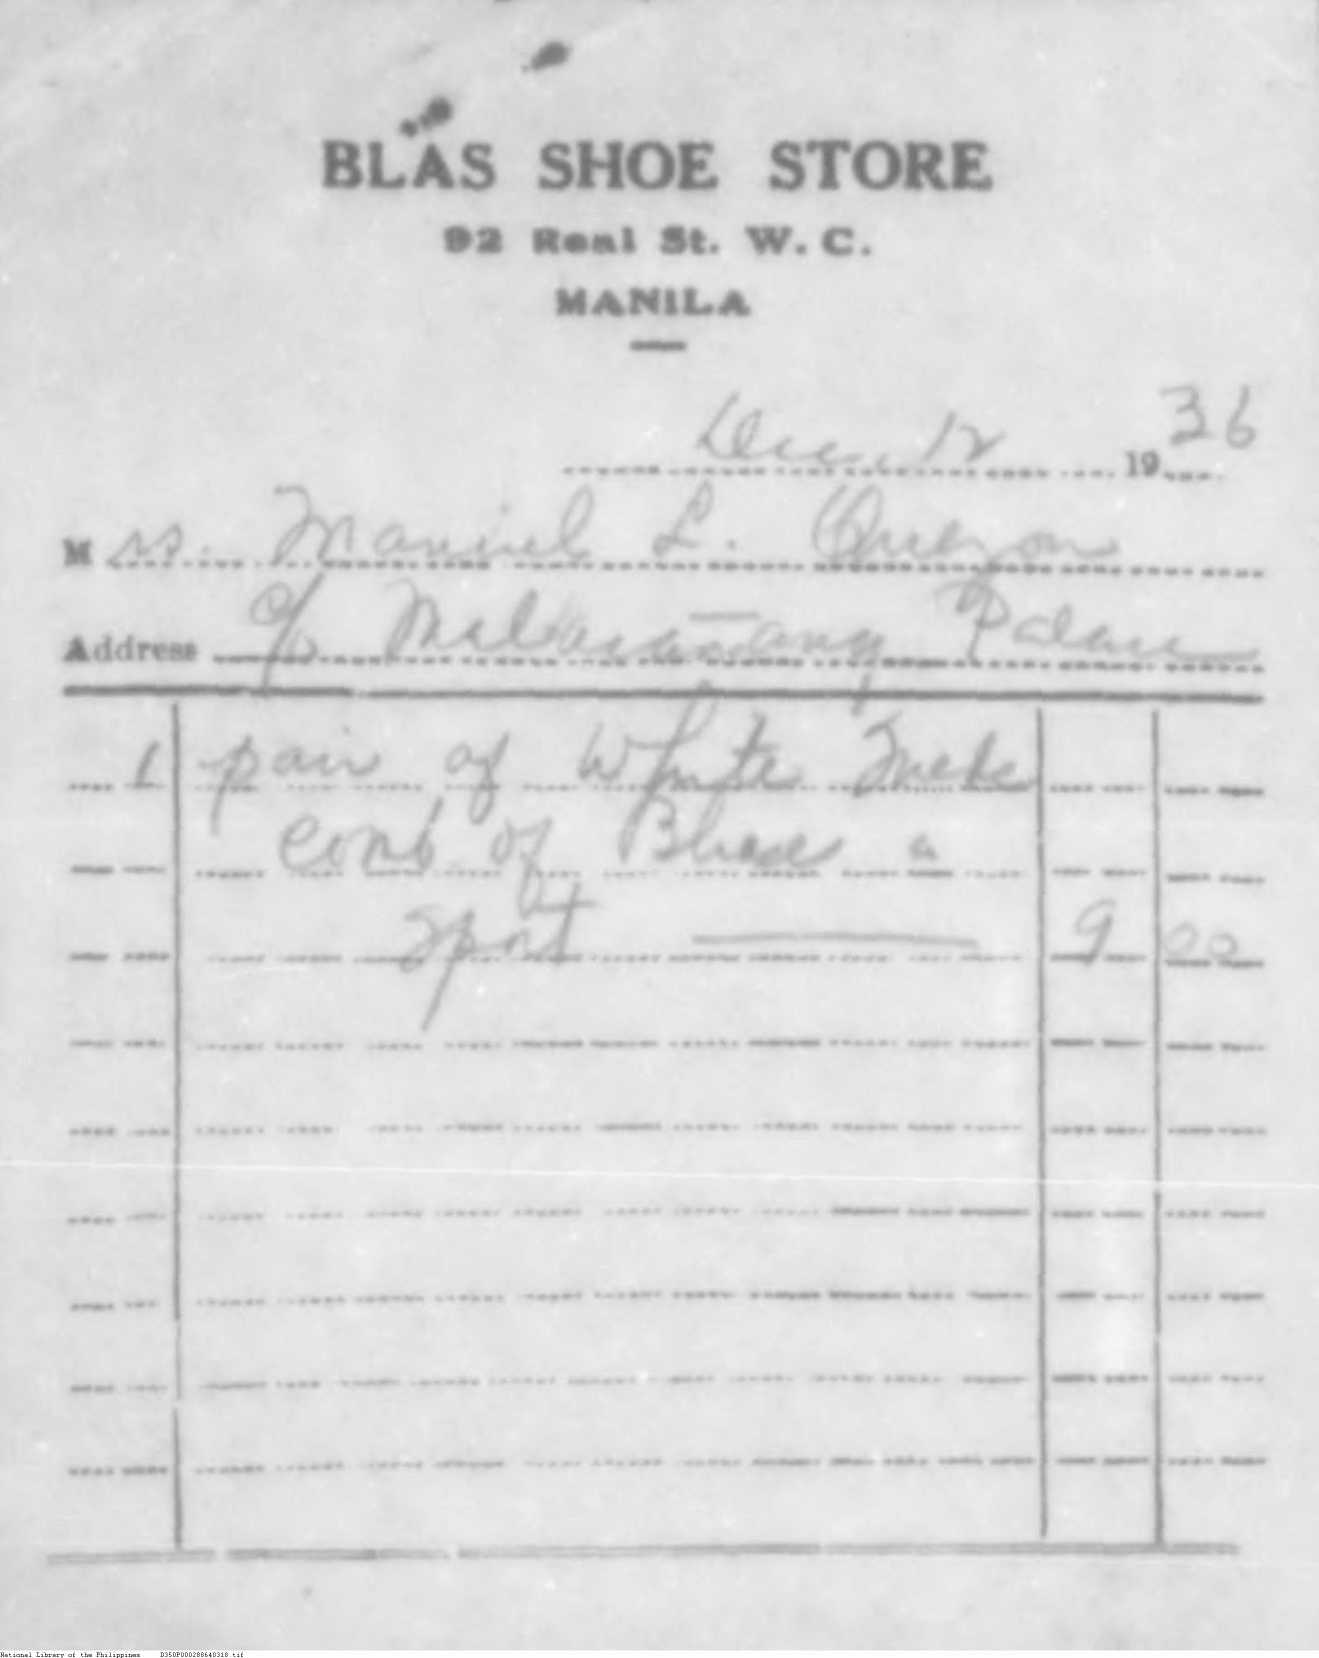 BLAS SHOE STORE
92 Real St. W. C.
MANILA
Dec. 12 1936
Mrs. Manuel L. Quezon
Address c/o Malacañang Palace
1 pair of White
Comb of a
Sport 9 00
National Library of the Philippines D350P000288640318.tif